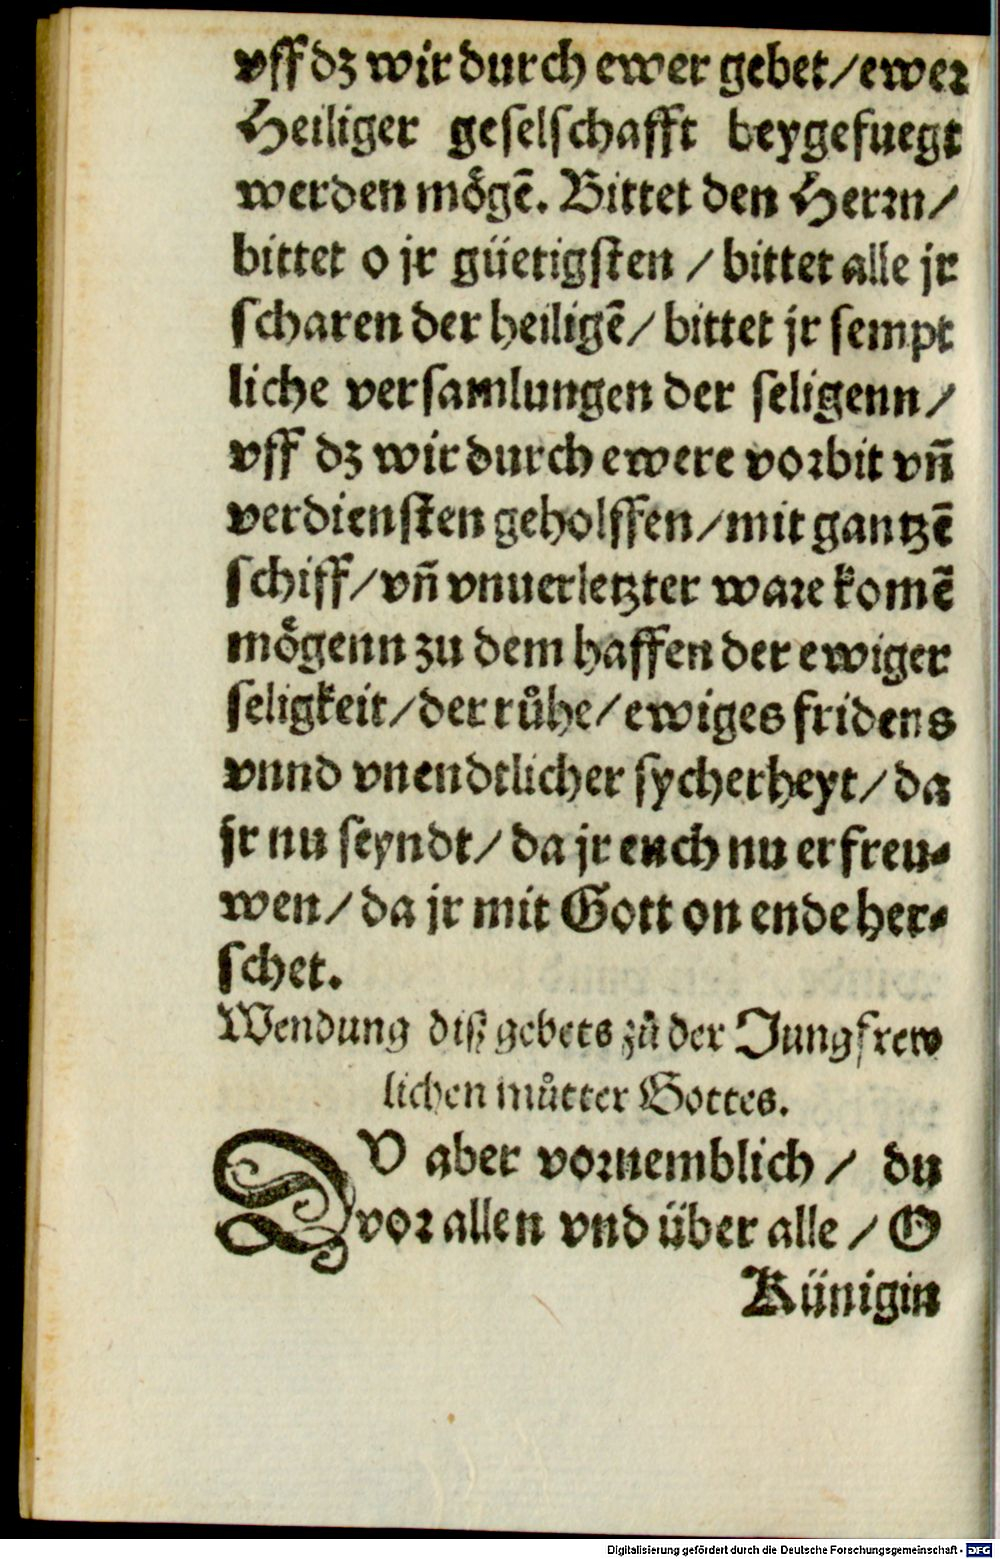 vff dz wir durch ewer gebet/ewer
Heiliger geselschafft beygefuegt
werden mögẽ. Bittet den Herrn/
bittet o jr güetigsten / bittet alle jr
scharen der heiligẽ/ bittet jr sempt
liche versamlungen der seligenn/
vff dz wir durch ewere vorbit vñ
verdiensten geholffen/mit gantzẽ
schiff/vñ vnuerletzter ware komẽ
mögenn zu dem haffen der ewiger
seligkeit/der růhe/ewiges fridens
vnnd vnendtlicher sycherheyt/da
jr nu seyndt/da jr euch nu erfreu-
wen/da jr mit Gott on ende her-
schet.
Wendung diß gebets zů der Jungfrew
lichen můtter Gottes.
DV aber vornemblich / du
vor allen vnd über alle / O
Künigin
Digitalisierung gefördert durch die Deutsche Forschungsgemeinschaft - DFG